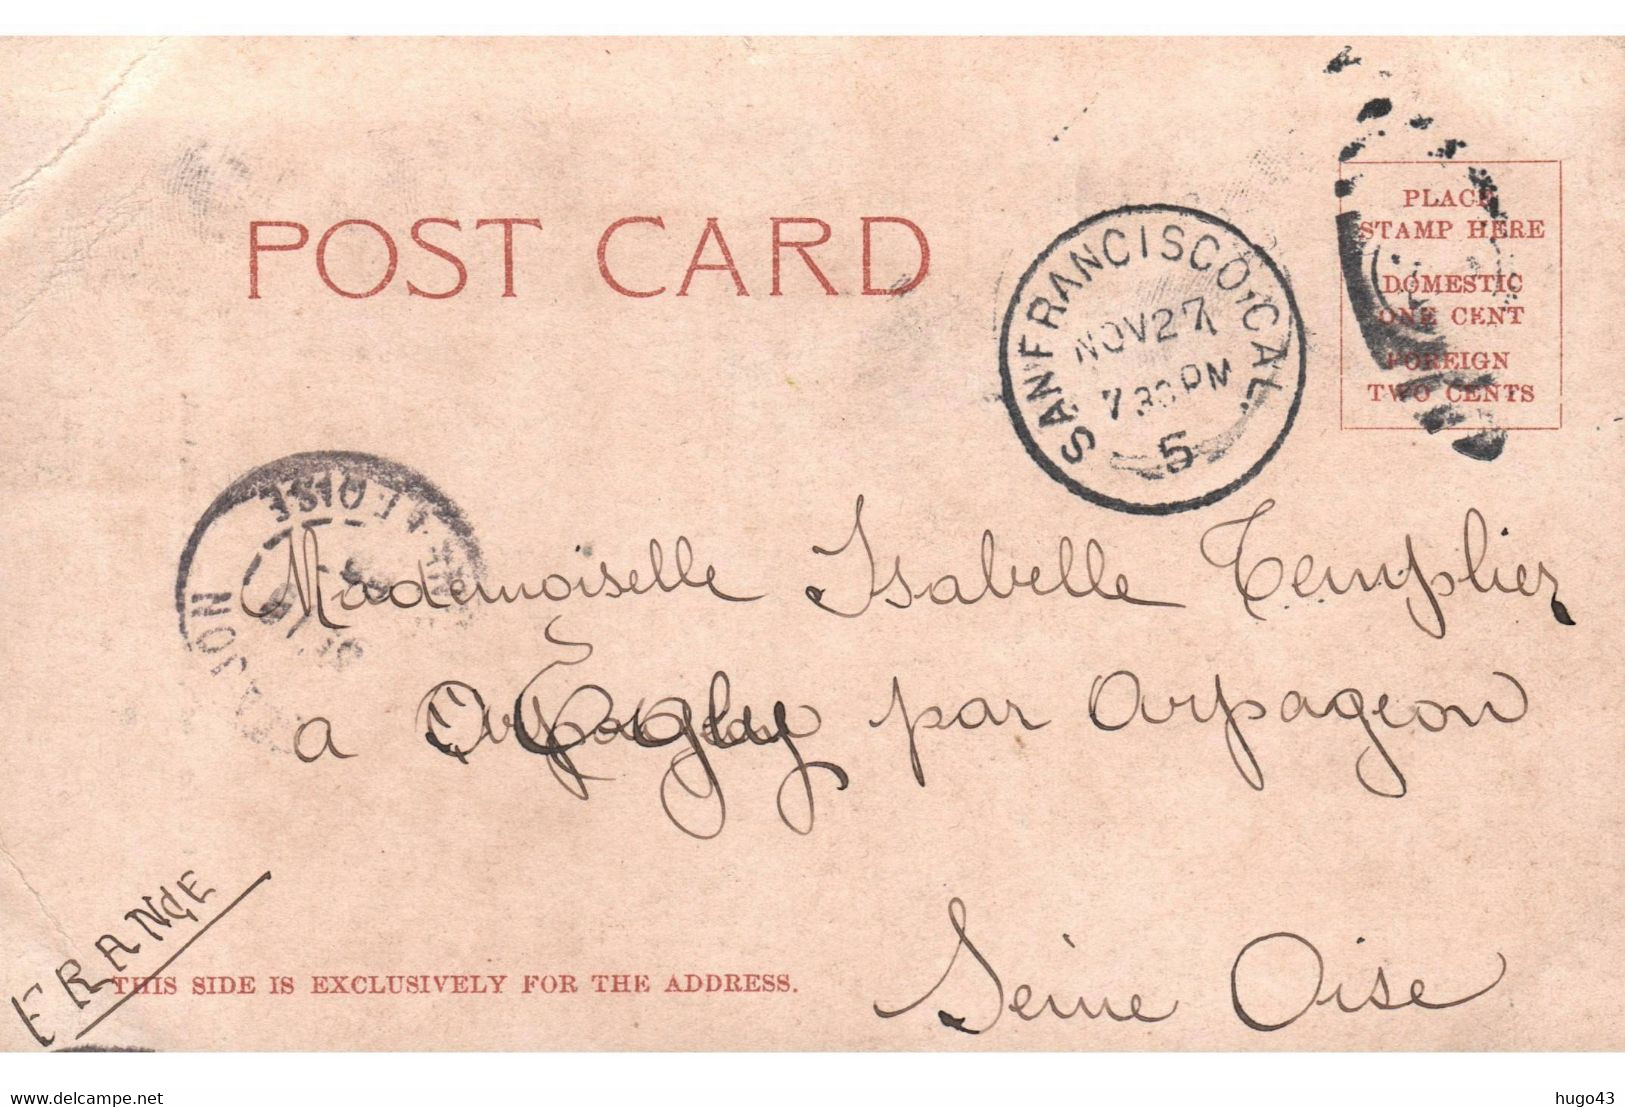 POST CARD
SAN FRANCISCO, CAL.
NOV 27
7 30 PM
5
PLACE
STAMP HERE
DOMESTIC
ONE CENT
FOREIGN
TWO CENTS
OISE
Mademoiselle Isabelle Templier
a Egly par Arpageon
Seine Oise
FRANCE
THIS SIDE IS EXCLUSIVELY FOR THE ADDRESS.
www.delcampe.net
hugo43